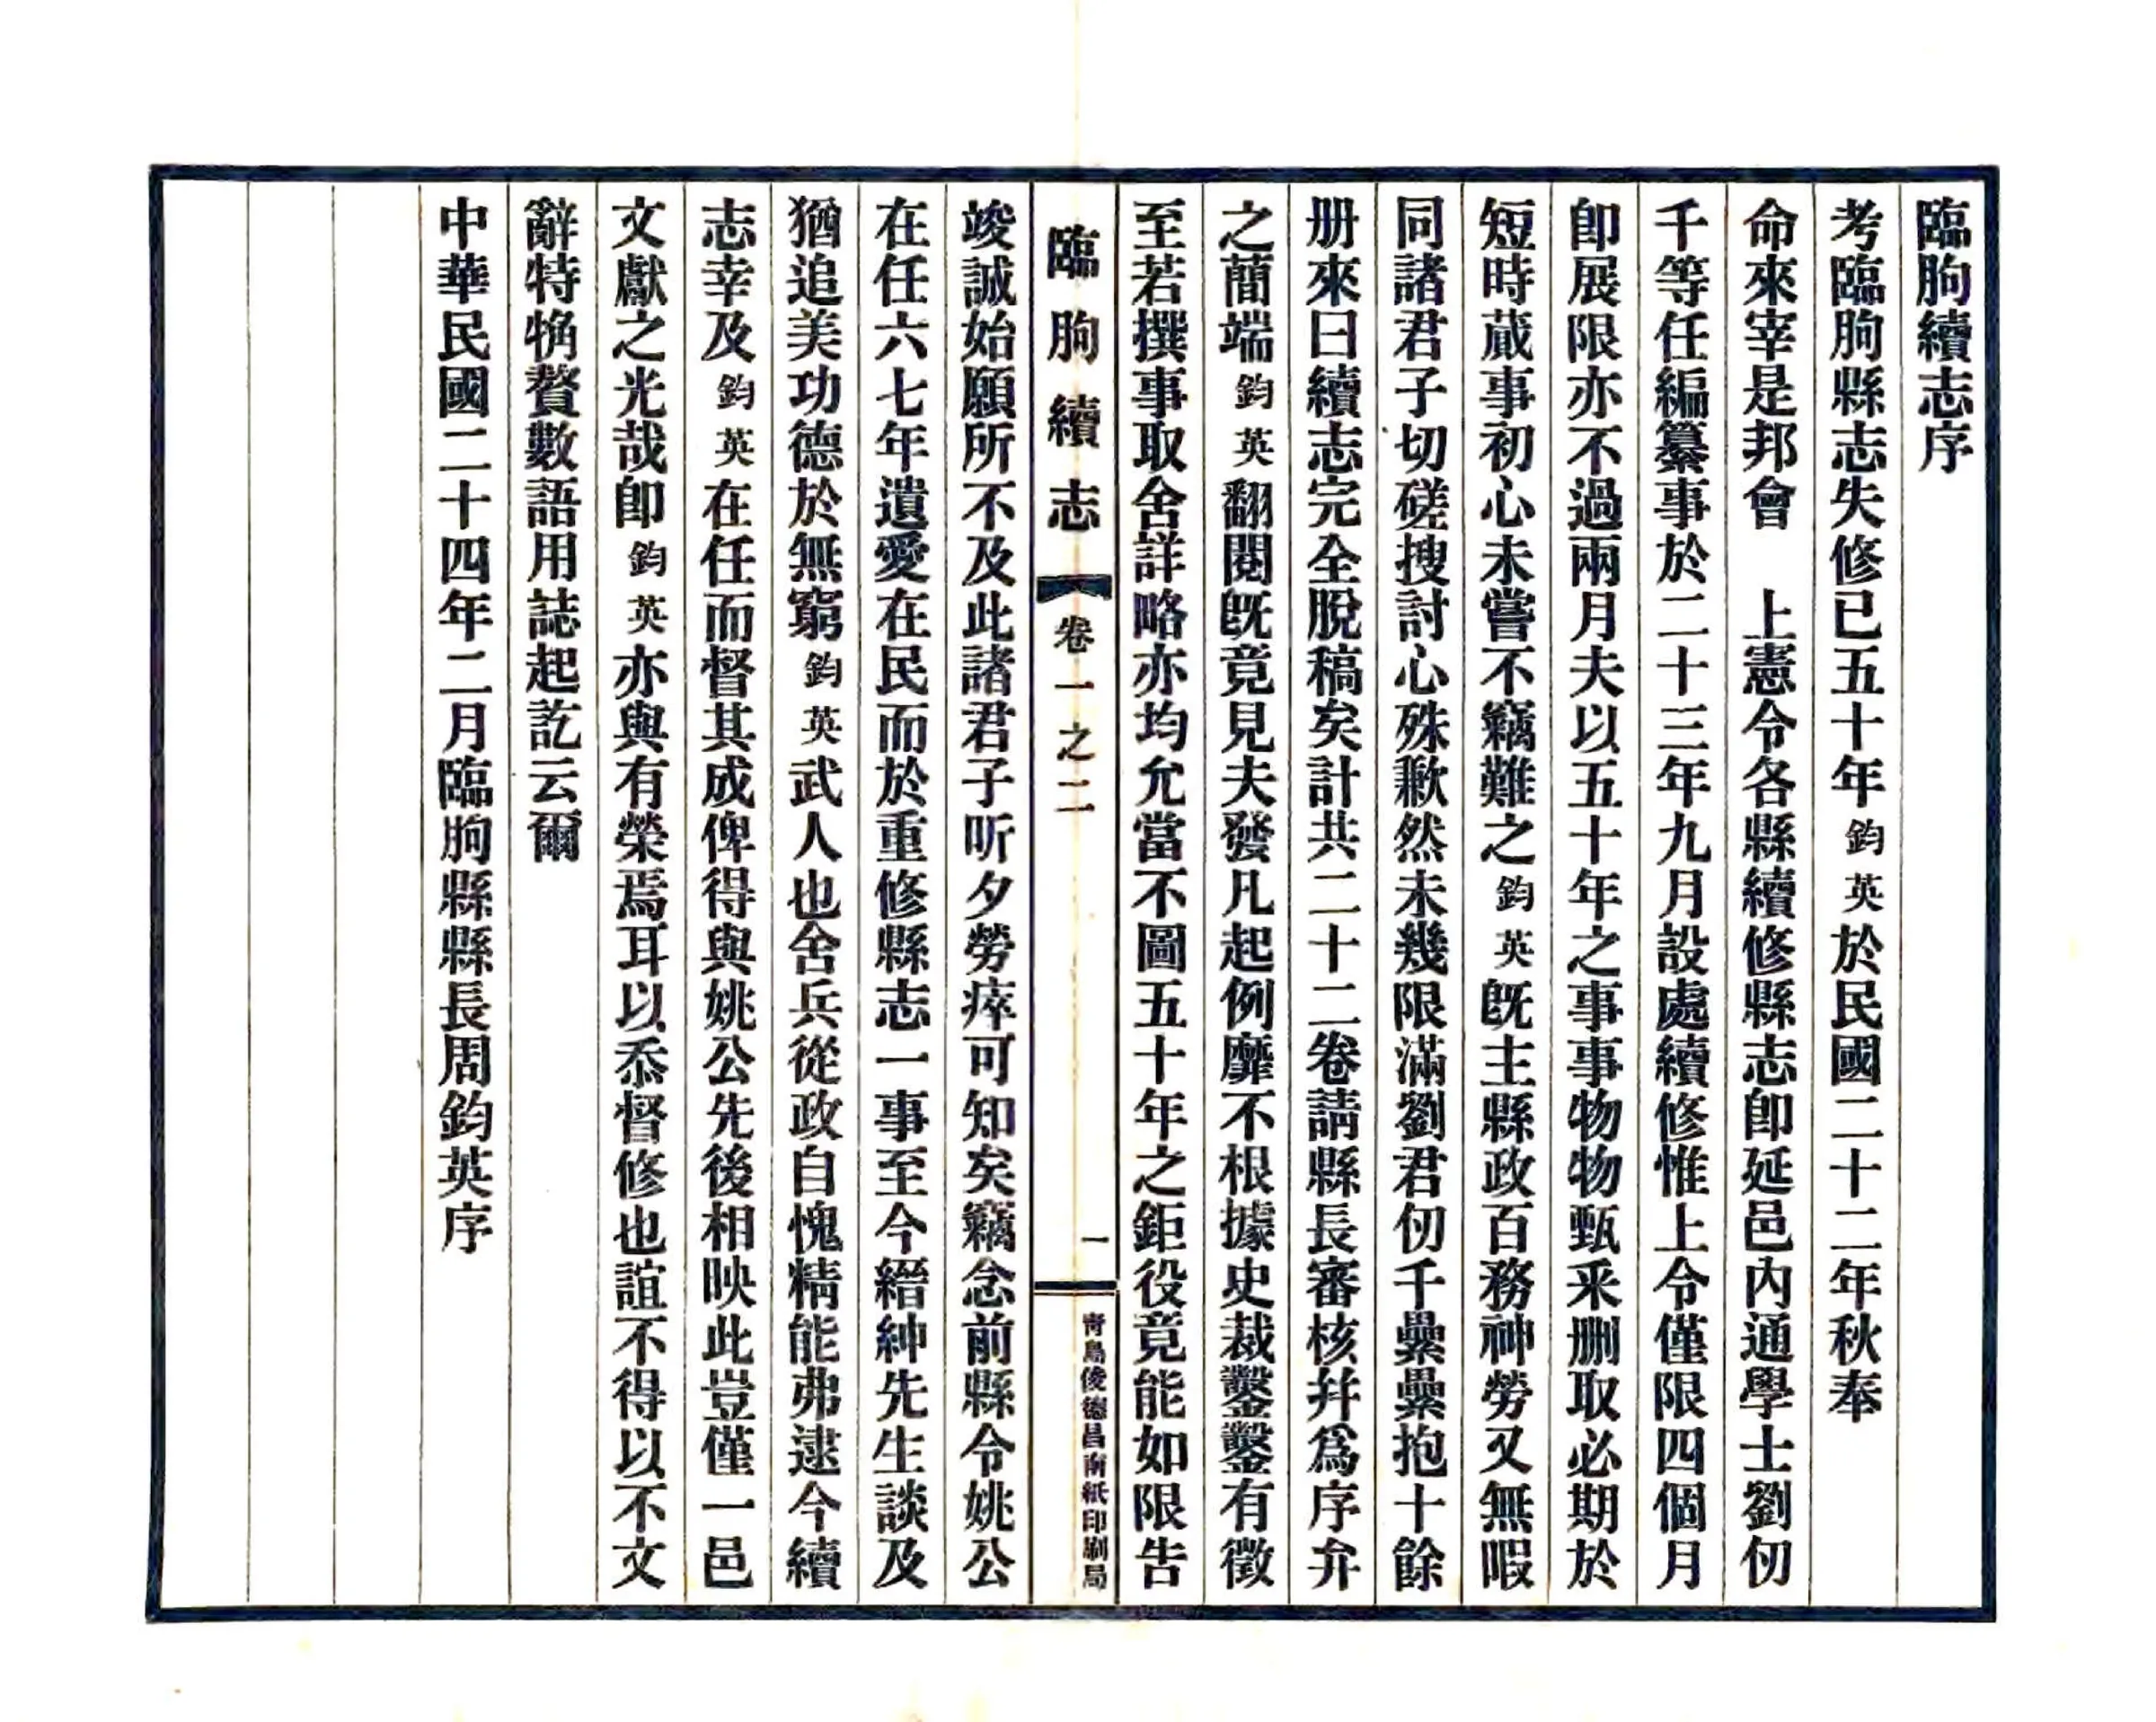 臨朐續志序
考臨朐縣志失修已五十年鈞英於民國二十二年秋奉
命來宰是邦會　上憲令各縣續修縣志卽延邑內通學士劉仞
千等任編纂事於二十三年九月設處續修惟上令僅限四個月
卽展限亦不過兩月夫以五十年之事事物物甄釆刪取必期於
短時蕆事初心未嘗不竊難之鈞英旣主縣政百務神勞又無暇
同諸君子切磋搜討心殊歉然未幾限滿劉君仞千纍纍抱十餘
册來曰續志完全脫稿矣計共二十二卷請縣長審核幷爲序弁
之簡端鈞英翻閱旣竟見夫發凡起例靡不根據史裁鑿鑿有徵
至若撰事取舍詳略亦均允當不圖五十年之鉅役竟能如限告
臨朐續志　卷一之二　一　靑島俊德昌南紙印刷局
竣誠始願所不及此諸君子昕夕勞瘁可知矣竊念前縣令姚公
在任六七年遺愛在民而於重修縣志一事至今縉紳先生談及
猶追美功德於無窮鈞英武人也舍兵從政自愧精能弗逮今續
志幸及鈞英在任而督其成俾得與姚公先後相映此豈僅一邑
文獻之光哉卽鈞英亦與有榮焉耳以忝督修也誼不得以不文
辭特觕贅數語用誌起訖云爾
中華民國二十四年二月臨朐縣縣長周鈞英序